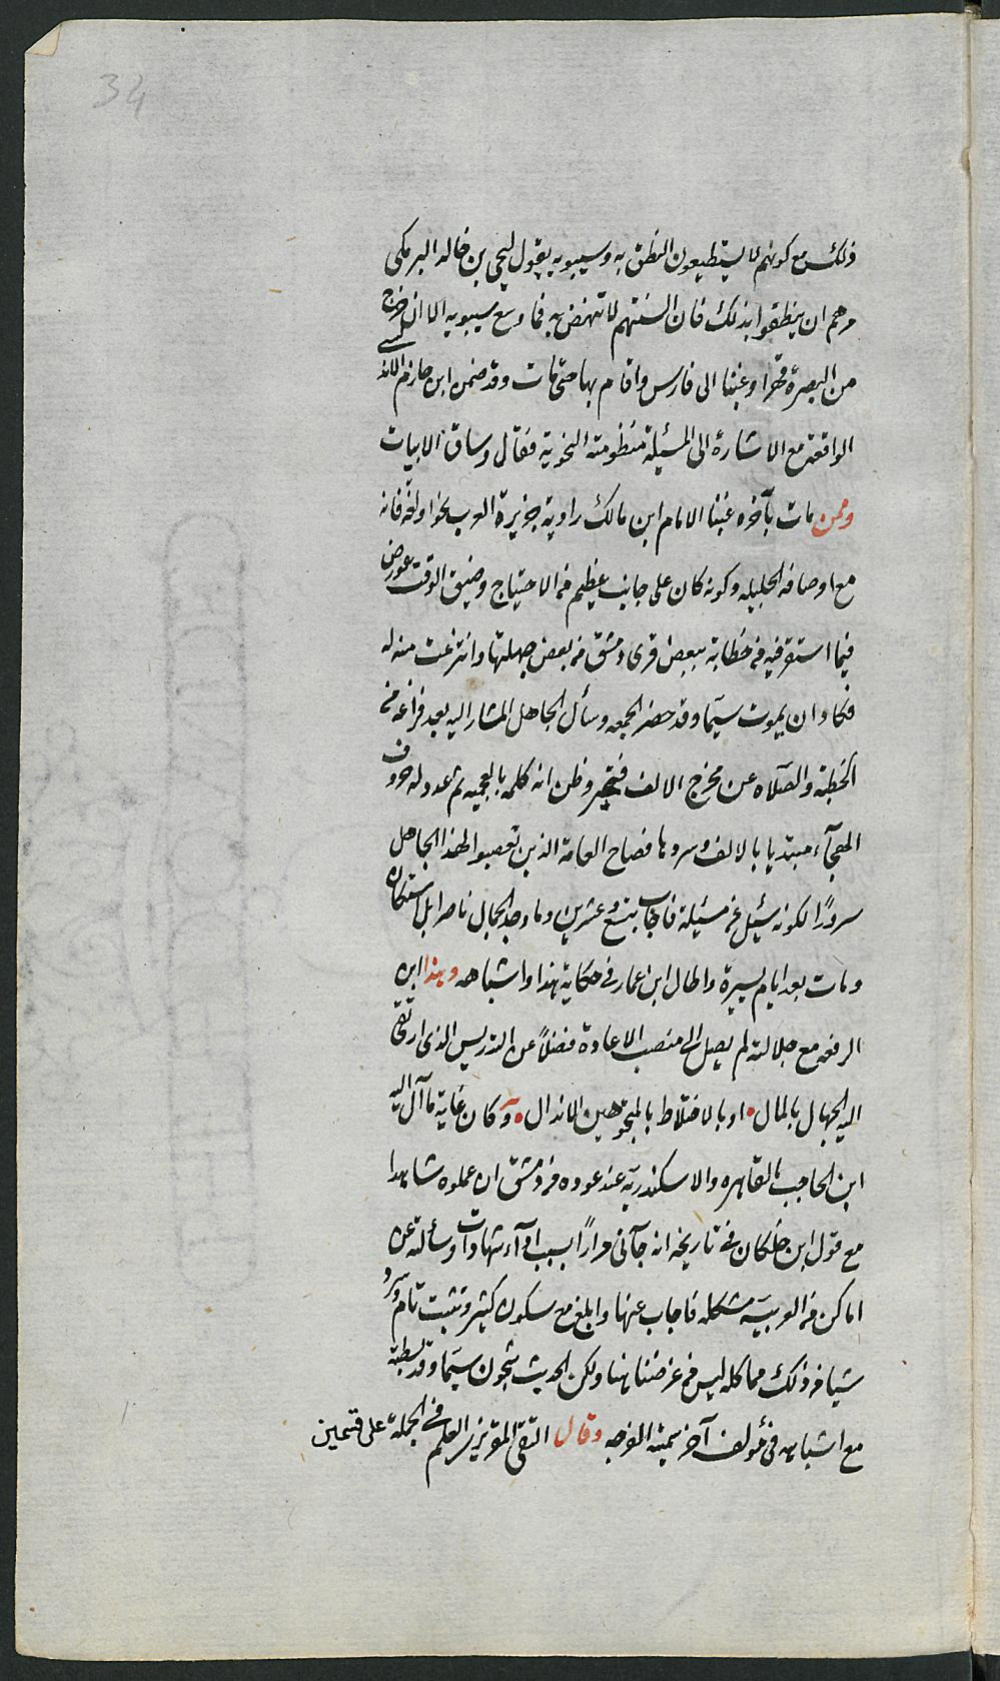 34
ذلك مع كونهم لا يستطيعون النطق به وسيبويه يقول ليحيى بن خالد البرمكى
مرهم ان ينطقوا بذلك فان السنتهم لا تنهض به فما وسع سيبويه الا ان خرج
من البصرة قهرا وغبنا الى فارس واقام بها حتى مات وقد ضمن ابن حازم الاندلسى
الواقعة مع الاشارة الى المسئلة منظومته النحوية فقال وساق الابيات
وممن مات بآخره غبنا الامام ابن مالك راوية جزيرة العرب نحوا ولغة فانه
مع اوصافه الجليله وكونه كان على جانب عظيم من الاحتياج وضيق الوقت عورض
فيما استقر فيه من خطابة ببعض قرى دمشق من بعض جهلتها وانتزعت منه له
فكاد ان يموت سيما وقد حضر الجمعه وسأل الجاهل المشار اليه بعد فراغه من
الخطبة والصلاه عن مخرج الالف فتحير وظن انه كلمه بالعجميه ثم عدد له حروف
الهجآء مبتديا بالالف وسردها فصاح العامة الذين تعصبوا لهذا الجاهل
سرورًا لكونه سئيل عن مسئيلة فاجاب بتسع وعشرين وما وجد الجمال ناصرا بل استكان
ومات بعد ايام يسيرة واطال ابن عمار فى حكاية هذا واشباهه وهذا ابن
الرفعه مع جلالته لم يصل الى منصب الاعادة فضلاً عن التدريس الذى ارتقى
اليه الجهال بالمال • او بالاختلاط بالمتجوهين الاندال • وكان غاية ما آل اليه
ابن الحاجب بالقاهره والاسكندرية عند عوده من دمشق ان عملوه شاهدا
مع قول ابن خلكان فى تاريخه انه جآنى مرارًا بسبب ادآء شهادات وسألته عن
اماكن من العربيه مشكله فاجاب عنها وابلغ مع سكون كثير وتثبت تام وسرد
شيا من ذلك مما كله ليس من غرضنا هنا ولكن الحديث شجون سيما وقد بسطته
مع اشباهه فى مؤلف آخر سميته الفرجه وقال التقى المقريزى العلم فى الجملة على قسمين